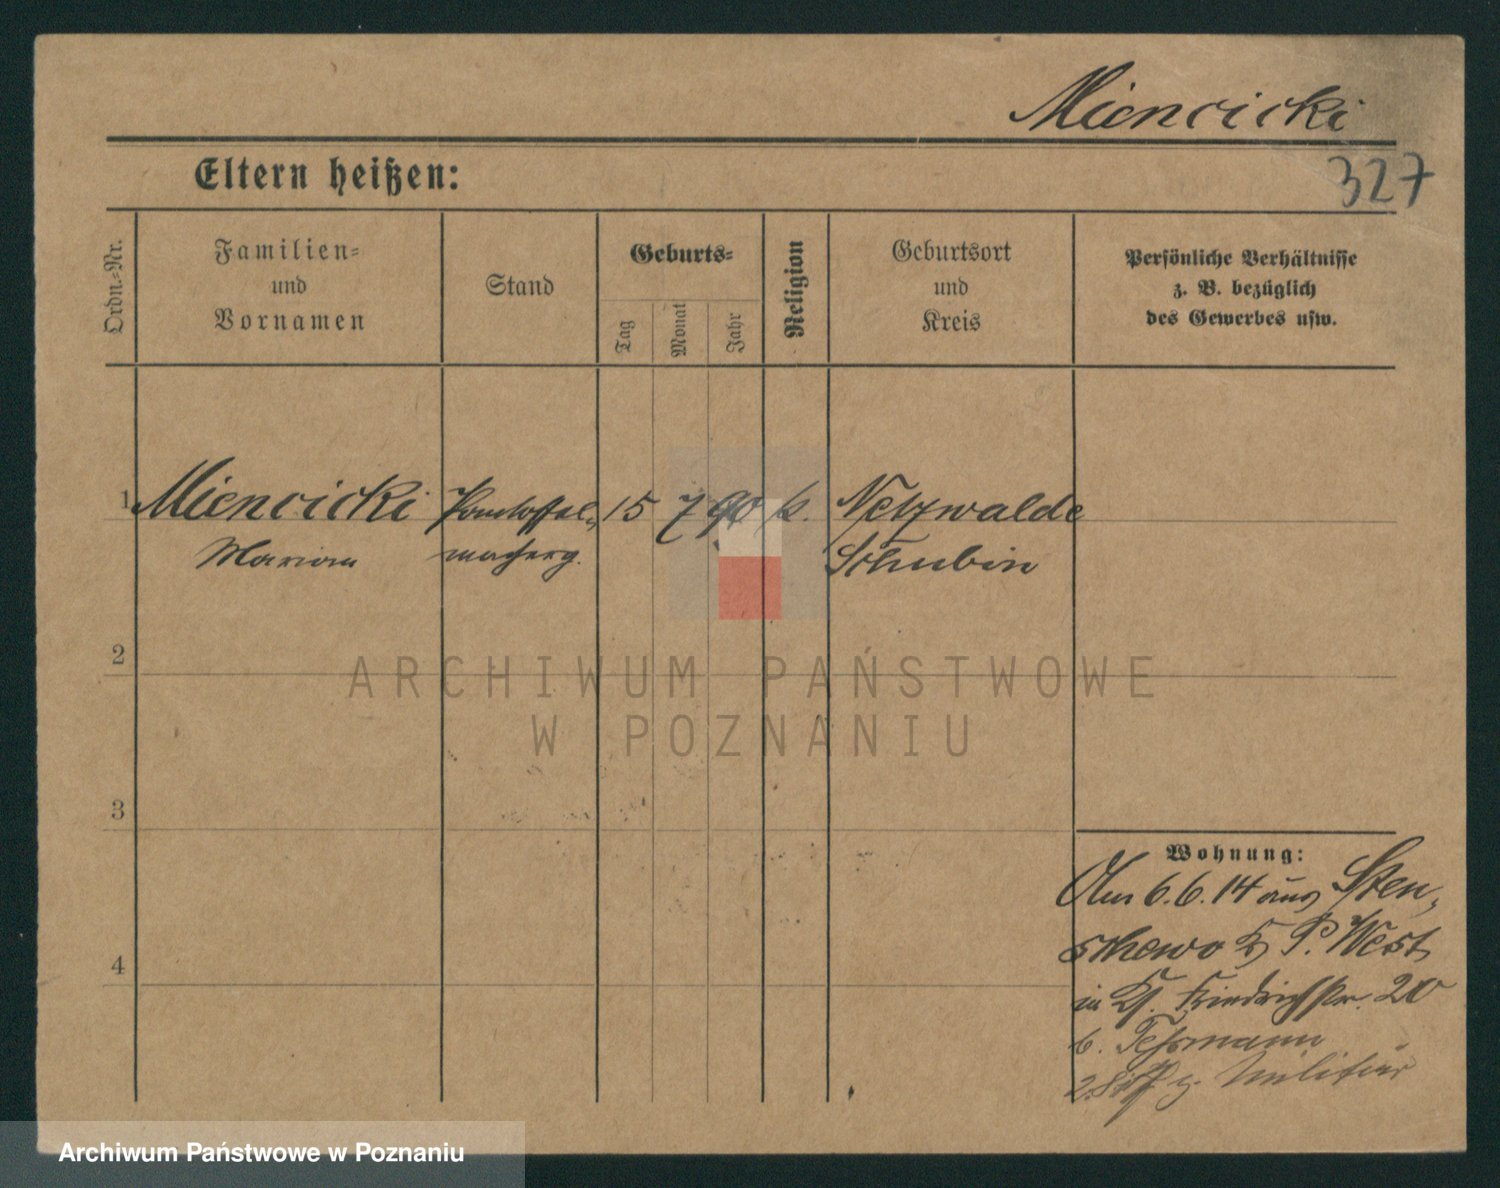 Miencicki
Eltern heißen:
327
Ordn.-Nr.
Familien-
und
Vornamen
Stand
Geburts-
Tag
Monat
Jahr
Religion
Geburtsort
und
Kreis
Persönliche Verhältnisse
z. B. bezüglich
des Gewerbes usw.
1 Miencicki Pantoffel- 15 7 90 k. Netzwalde
Marian macherg. Schubin
2
ARCHIWUM PAŃSTWOWE
W POZNANIU
3
Wohnung:
Am 6.6.14 aus Sten-
schewo Kr P. West
in Friedrichstr. 20
b. Tehsmann
z. Militär
4
Archiwum Państwowe w Poznaniu